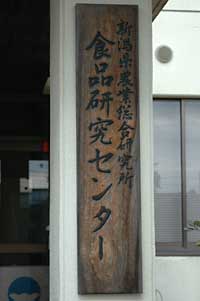 新潟県農業総合研究所
食品研究センター